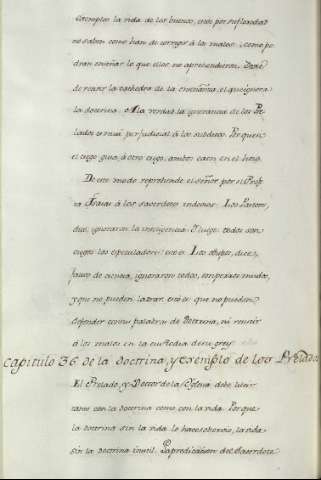 exemplos la vida de los buenos, estos por su flaxedad
no saben como han de corregir á los malos. como po
dran enseñar lo que ellos no aprehendieron. Dexe
de recivir la cathedra de la enseñanza, el que ignora
la doctrina. A la verdad la ignorancia de los Pre
lados es mui perjudicial á los subditos. Porque si
el ciego guia, á otro ciego, ambos caen en el hoio.
De este modo reprehende el señor por el Prof
ta Isaias á los sacerdotes indoctos. Los Pastores,
dice, ignoraron la inteligencia. Y luego: todos son
ciegos los speculadores: esto es. Los obispos, dice,
faltos de ciencia, ignoraron todos, son perros mudos,
y que no pueden ladrar: esto es que no pueden
defender con su palabra de Doctrina, ni resistir
á los malos en la custodia de su grey
Capitulo 36 de la Doctrina, y exemplo de los Prelados
El Prelado, y Doctor de la Yglesia debe lucir
tanto con la doctrina como con la vida. Porque
la doctrina sin la vida lo hace soberbio, la vida
sin la doctrina inutil. La predicacion del Sacerdote